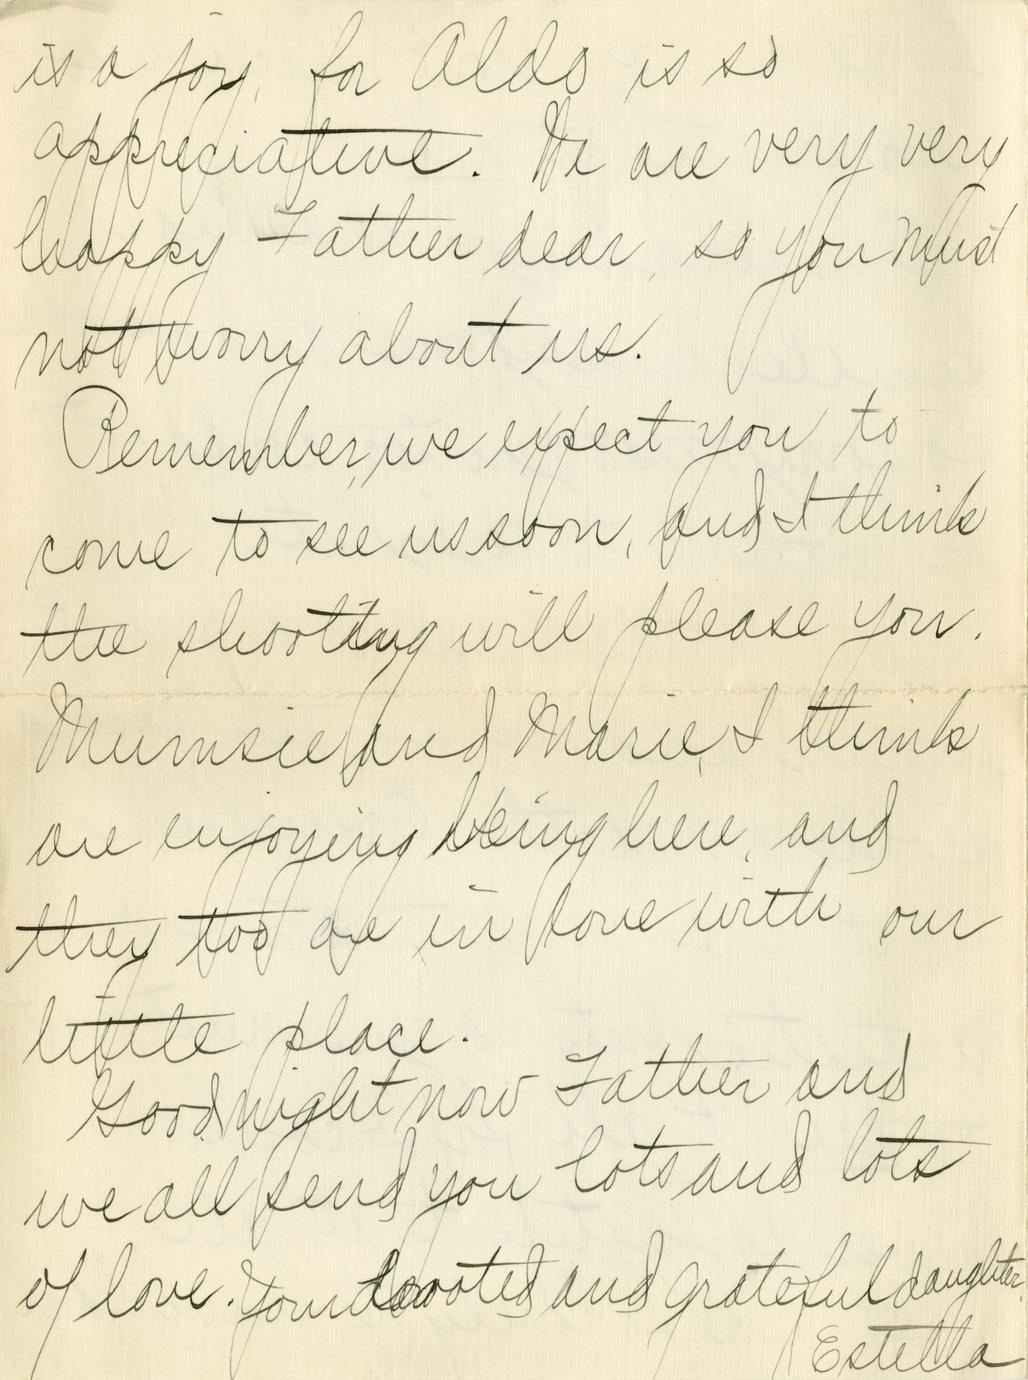 is a joy, for Aldo is so
appreciative. We are very very
happy Father dear, so you must
not worry about us.
Remember, we expect you to
come to see us soon, and I think
the shooting will please you.
Mumsie and Marie, I think
are enjoying being here, and
they too are in love with our
little place.
Good night now Father and
we all send you lots and lots
of love. Your devoted and grateful daughter,
Estella